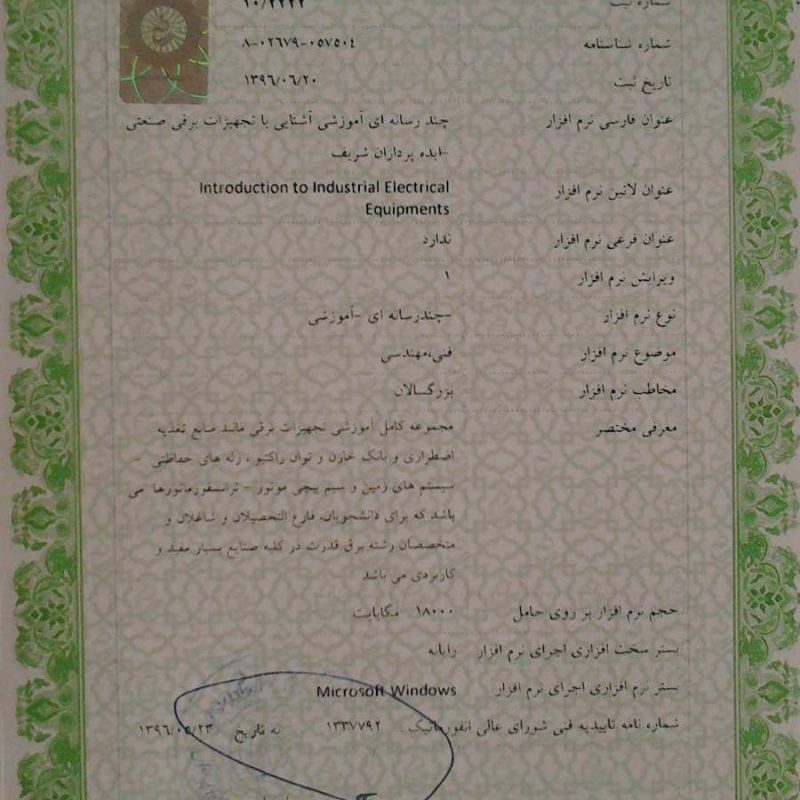 شماره ثبت
شماره شناسنامه ۸-۰۲۶۷۹-۰۵۷۵۰٤
تاریخ ثبت ۱۳۹٦/۰٦/۲۰
عنوان فارسی نرم افزار چند رسانه ای آموزشی آشنایی با تجهیزات برقی صنعتی
-ایده پردازان شریف
عنوان لاتین نرم افزار Introduction to Industrial Electrical
Equipments
عنوان فرعی نرم افزار ندارد
ویرایش نرم افزار ۱
نوع نرم افزار -چندرسانه ای -آموزشی
موضوع نرم افزار فنی،مهندسی
مخاطب نرم افزار بزرگسالان
معرفی مختصر مجموعه کامل آموزشی تجهیزات برقی مانند منابع تغذیه
اضطراری و بانک خازن و توان راکتیو ، رله های حفاظتی -
سیستم های زمین و سیم پیچی موتور - ترانسفورماتورها می
باشد که برای دانشجویان، فارغ التحصیلان و شاغلان و
متخصصان رشته برق قدرت در کلیه صنایع بسیار مفید و
کاربردی می باشد
حجم نرم افزار بر روی حامل ۱۸۰۰۰ مگابایت
بستر سخت افزاری اجرای نرم افزار رایانه
بستر نرم افزاری اجرای نرم افزار Microsoft Windows
شماره نامه تاییدیه فنی شورای عالی انفورماتیک . ۱۳۳۷۷۹۲ به تاریخ